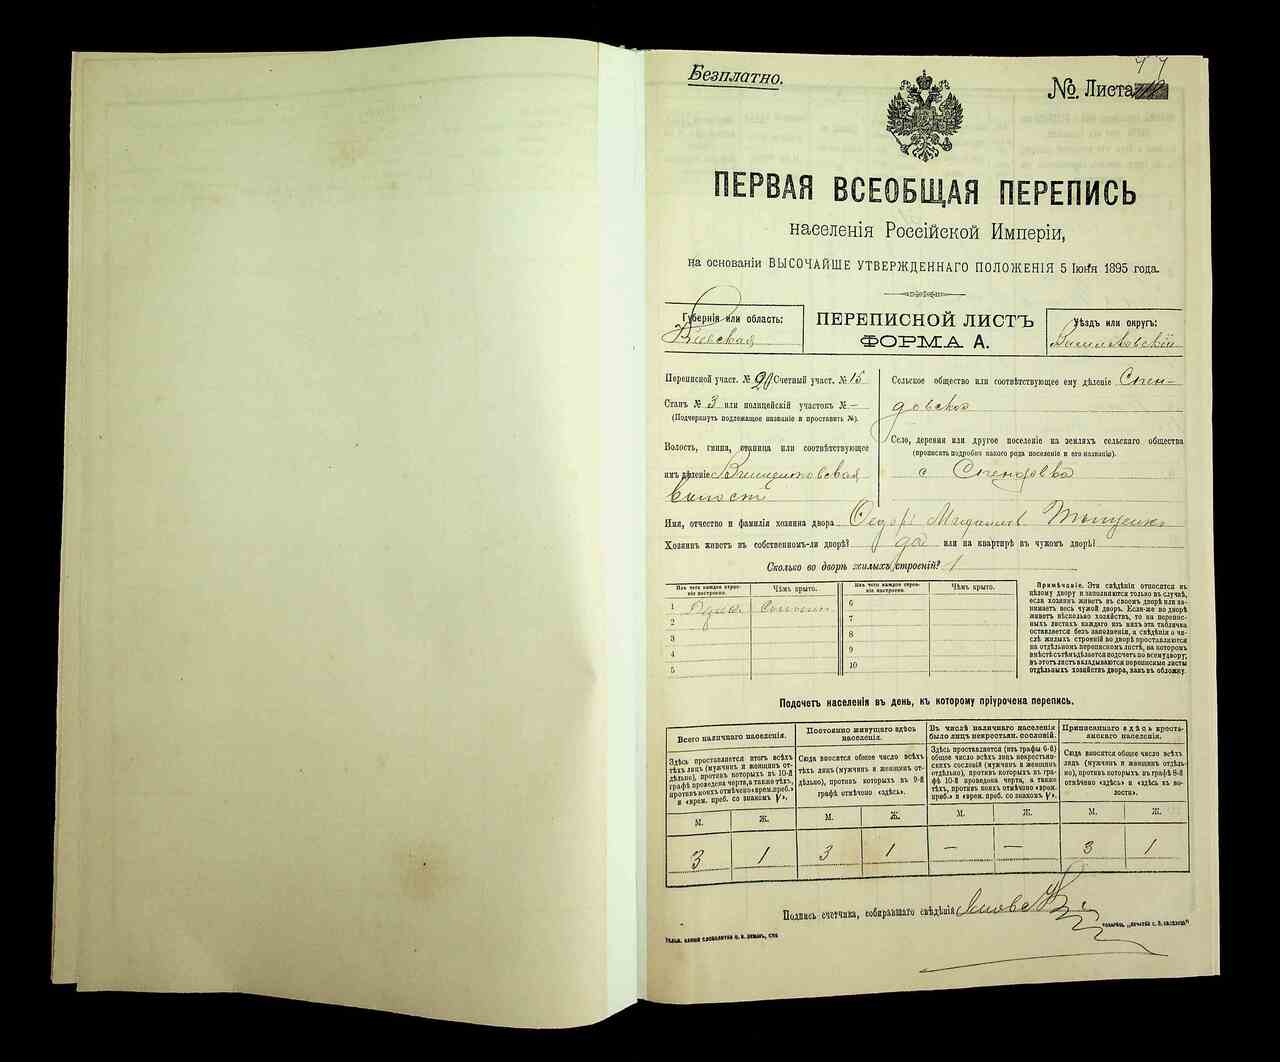 Безплатно.
№ Листа
ПЕРВАЯ ВСЕОБЩАЯ ПЕРЕПИСЬ
населенія Россійской Имперіи,
на основаніи ВЫСОЧАЙШЕ УТВЕРЖДЕННАГО ПОЛОЖЕНІЯ 5 Іюня 1895 года.
Губернія или область:
Кіевская
ПЕРЕПИСНОЙ ЛИСТЪ
ФОРМА А.
Уѣздъ или округъ:
Васильковскій
Переписной участ. № 20 Счетный участ. № 15
Станъ № 3 или полицейскій участокъ № —
(Подчеркнуть подлежащее названіе и проставить №).
Волость, гмина, станица или соотвѣтствующее
имъ дѣленіе
волость
Сельское общество или соотвѣтствующее ему дѣленіе
Село, деревня или другое поселеніе на земляхъ сельскаго общества
(прописать подробно какого рода поселеніе и его названіе).
с
Имя, отчество и фамилія хозяина двора
Хозяинъ живетъ въ собственномъ-ли дворѣ? да или на квартирѣ въ чужомъ дворѣ?
Сколько во дворѣ жилыхъ строеній? 1
Изъ чего каждое строеніе построено.
Чѣмъ крыто.
Изъ чего каждое строеніе построено.
Чѣмъ крыто.
1 соломою
2
3
4
5
6
7
8
9
10
Примѣчаніе. Эти свѣдѣнія относятся къ
цѣлому двору и заполняются только въ случаѣ,
если хозяинъ живетъ въ своемъ дворѣ или за-
нимаетъ весь чужой дворъ. Если-же во дворѣ
живетъ нѣсколько хозяйствъ, то на перепис-
ныхъ листахъ каждаго изъ нихъ эта табличка
оставляется безъ заполненія, а свѣдѣнія о чи-
слѣ жилыхъ строеній во дворѣ проставляются
на отдѣльномъ переписномъ листѣ, на которомъ
вмѣстѣ съ тѣмъ дѣлается подсчетъ по всему двору;
въ этотъ листъ вкладываются переписные листы
отдѣльныхъ хозяйствъ двора, какъ въ обложку.
Подсчетъ населенія въ день, къ которому пріурочена перепись.
Всего наличнаго населенія.
Здѣсь проставляется итогъ всѣхъ
тѣхъ лицъ (мужчинъ и женщинъ от-
дѣльно), противъ которыхъ въ 10-й
графѣ проведена черта, а также тѣхъ,
противъ коихъ отмѣчено «врем. преб.»
и «врем. преб. со знакомъ V».
Постоянно живущаго здѣсь
населенія.
Сюда вносится общее число всѣхъ
тѣхъ лицъ (мужчинъ и женщинъ от-
дѣльно), противъ которыхъ въ 9-й
графѣ отмѣчено «здѣсь».
Въ числѣ наличнаго населенія
было лицъ некрестьян. сословій.
Здѣсь проставляется (изъ графы 6-й)
общее число всѣхъ лицъ некрестьян-
скихъ сословій (мужчинъ и женщинъ
отдѣльно), противъ которыхъ въ гра-
фѣ 10-й проведена черта, а также
тѣхъ, противъ коихъ отмѣчено «врем.
преб.» и «врем. преб. со знакомъ V».
Приписаннаго здѣсь кресть-
янскаго населенія.
Сюда вносится общее число всѣхъ
лицъ (мужчинъ и женщинъ отдѣль-
но), противъ которыхъ въ графѣ 8-й
отмѣчено «здѣсь» и «здѣсь въ во-
лости».
М. Ж. М. Ж. М. Ж. М. Ж.
3 1 3 1 — — 3 1
Подпись счетчика, собиравшаго свѣдѣнія